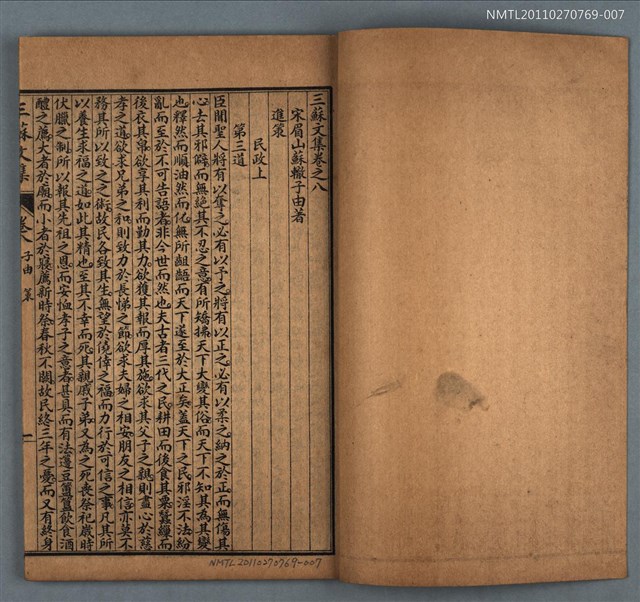 NMTL20110270769-007
三蘇文集卷之八
宋眉山蘇轍子由著
進策
民政上
第三道
臣聞聖人將有以奪之必有以予之將有以正之必有以柔之納之於正而無傷其
心去其邪僻而無絕其不忍之意有所矯拂天下大變其俗而天下不知其為其變
也釋然而順油然而化無所齟齬而天下遂至於大正矣蓋天下之民邪淫不法紛
亂而至於不可告語者非今世而然也夫古者三代之民耕田而後食其粟蠶繅而
後衣其帛欲享其利而勤其力欲獲其報而厚其施欲求其父子之親則盡心於慈
孝之道欲求兄弟之和則致力於長悌之節欲求夫婦之相安朋友之相信亦莫不
務其所以致之之術故民各致其生無望於僥倖之福而力行於可信之事凡其所
以養生求福之道如此其精也至其不幸而死其親戚子弟又為之死喪祭祀歲時
伏臘之制所以報其先祖之恩而安恤孝子之意者甚具而有法籩豆簠簋飲食酒
醴之薦大者於廟而小者於寢薦新時祭春秋不闕故民終三年之憂而又有終身
三蘇文集
卷八
子由
策
一
NMTL20110270769-007